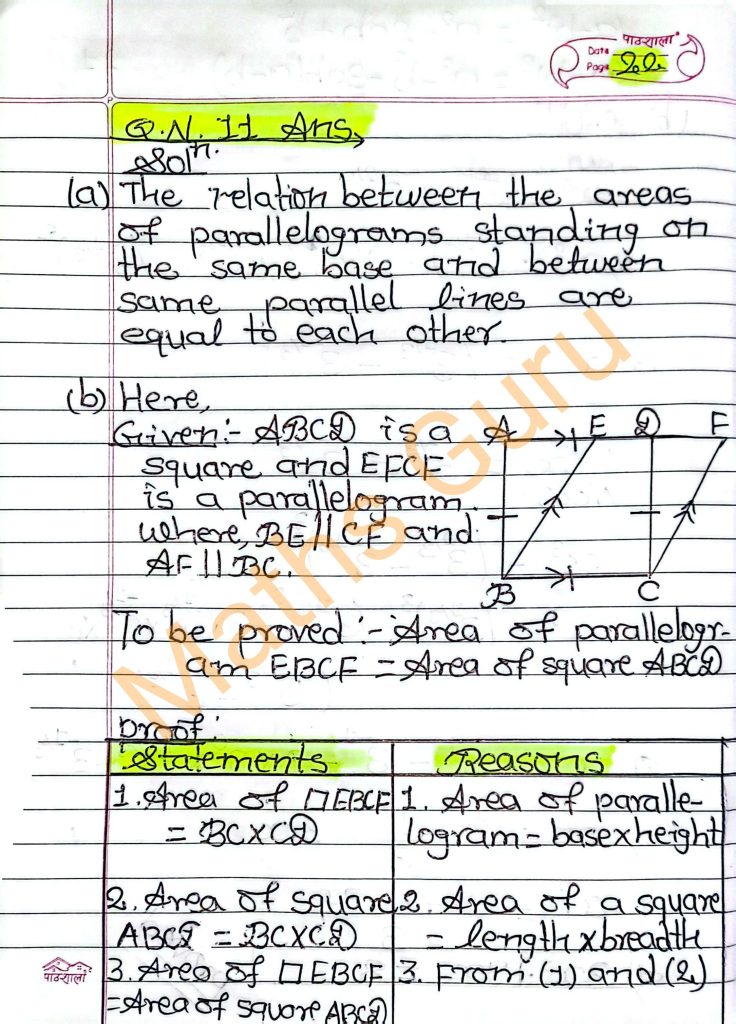 पाठशाला
Date
Page 22
Q.N. 11 Ans,
Solⁿ.
(a) The relation between the areas
of parallelograms standing on
the same base and between
same parallel lines are
equal to each other.
(b) Here,
Given:- ABCD is a
square and EFCF
is a parallelogram.
where, BE || CF and
AF || BC.
A E D F
B C
To be proved :- Area of parallelogr-
am EBCF = Area of square ABCD
Proof:
Statements Reasons
1. Area of ▱ EBCF 1. Area of paralle-
= BC×CD logram = base×height
2. Area of square 2. Area of a square
ABCD = BC×CD = length×breadth
3. Area of ▱ EBCF 3. From (1) and (2)
=Area of square ABCD
पाठशाला
Maths Guru